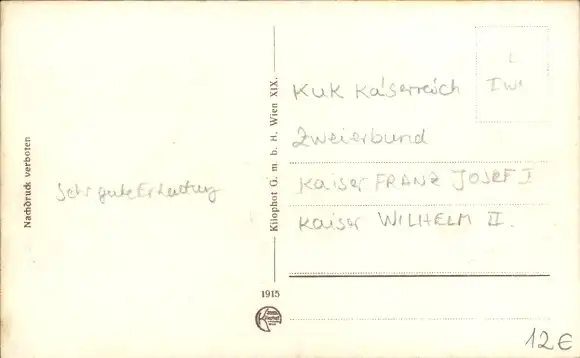 Nachdruck verboten
Sehr gute Erhaltung
Kilophot G. m. b. H. Wien XIX.
1915
L
IWk
KuK Kaiserreich
Zweierbund
Kaiser FRANZ JOSEF I
Kaiser WILHELM II.
12€